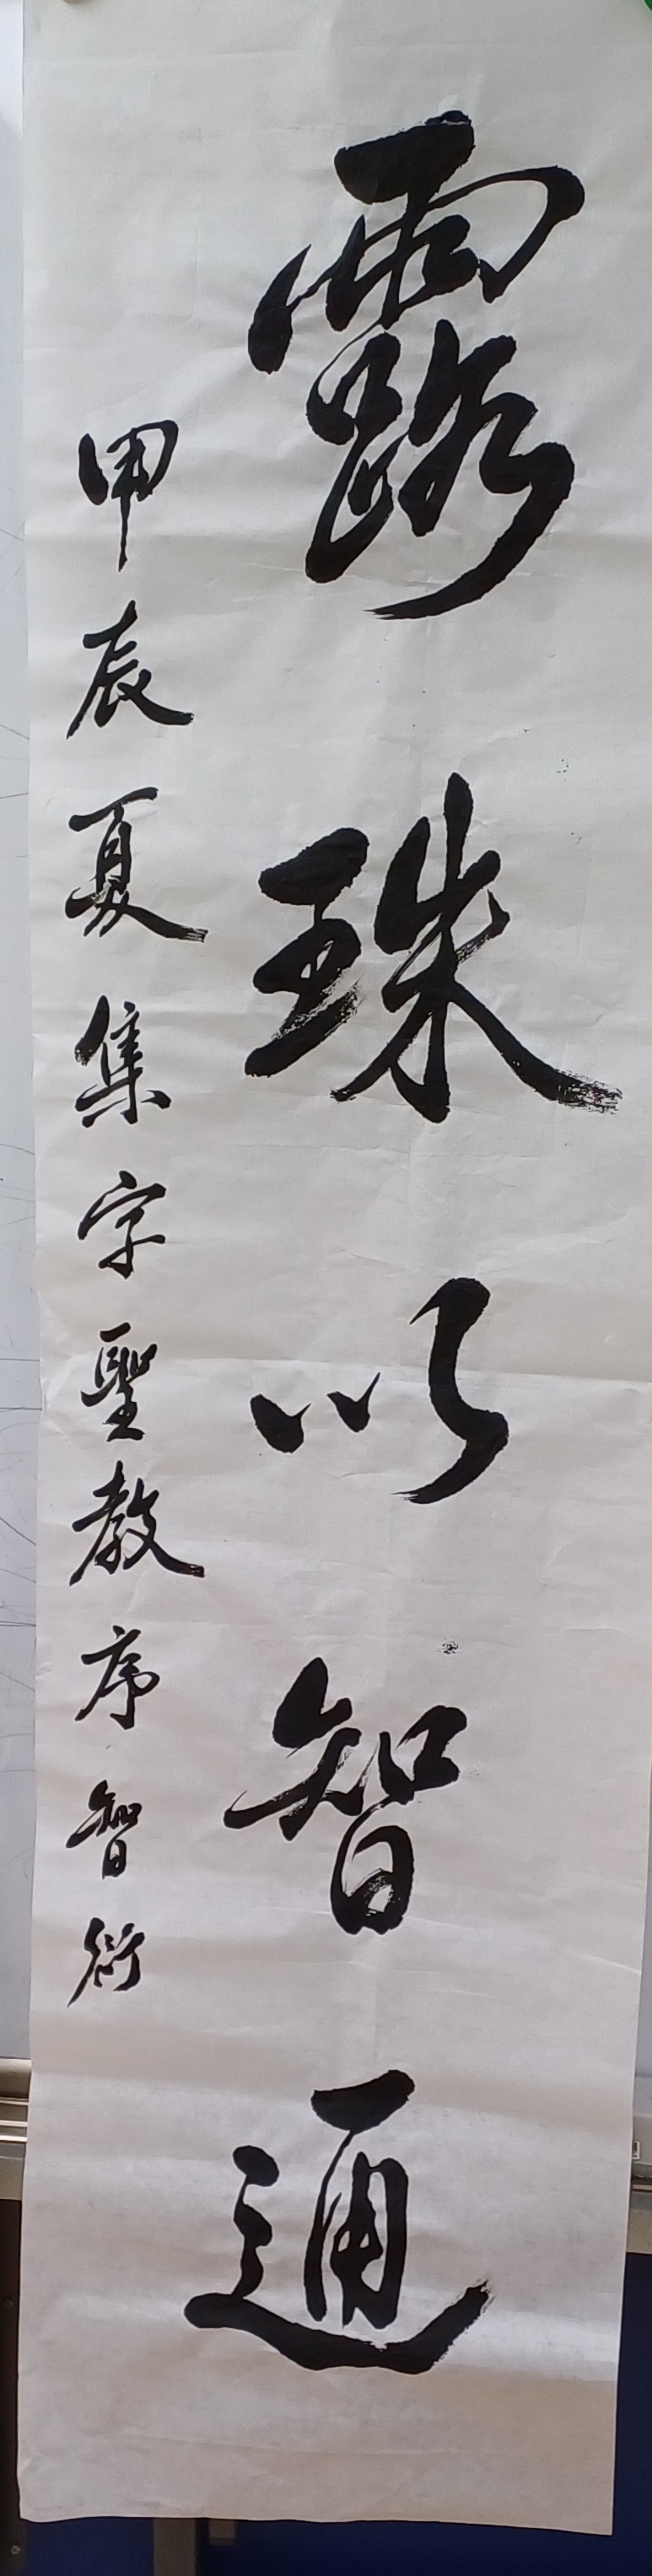 露珠以智通
甲辰夏集字聖教序智衍